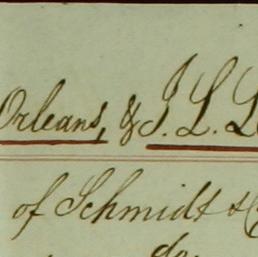 Orleans, & J. L. L
of Schmidt & C
do